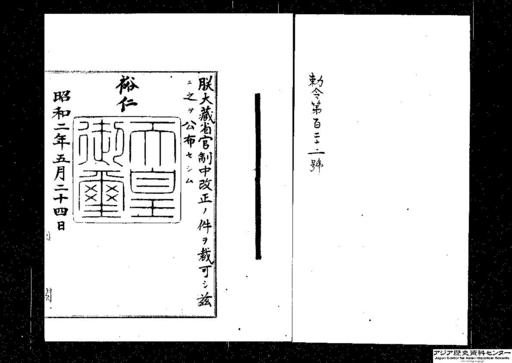 勅令第百二十一號
朕大藏省官制中改正ノ件ヲ裁可シ茲
ニ之ヲ公布セシム
裕仁
天皇御璽
昭和二年五月二十四日
アジア歴史資料センター
Japan Center for Asian Historical Records